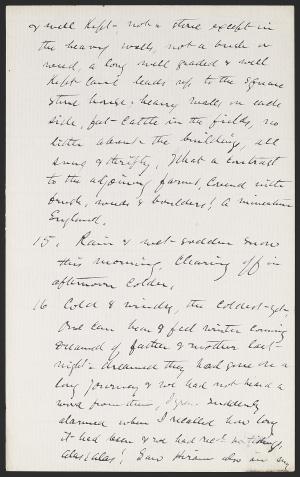 & well kept - not a stone except in
the heavy walls, not a bush or
weed, a long well graded & well
kept lane leads up to the square
stone house - heavy walls on each
side, fat cattle in the fields, no
litter about the building, all
snug & thrifty. What a contrast
to the adjoining farms, covered with
brush, weeds & boulders! A miniature
England.
15. Rain & wet sodden snow
this morning. Clearing off in
afternoon colder.
16 Cold & windy, the coldest yet.
One can hear & feel winter coming
Dreamed of father & mother last
night - dreamed they had gone on a
long journey & we had not heard a
word from them, I grew suddenly
alarmed when I recalled how long
it had been & we had rec'd no tidings,
alas, alas! Saw Hiram also in my